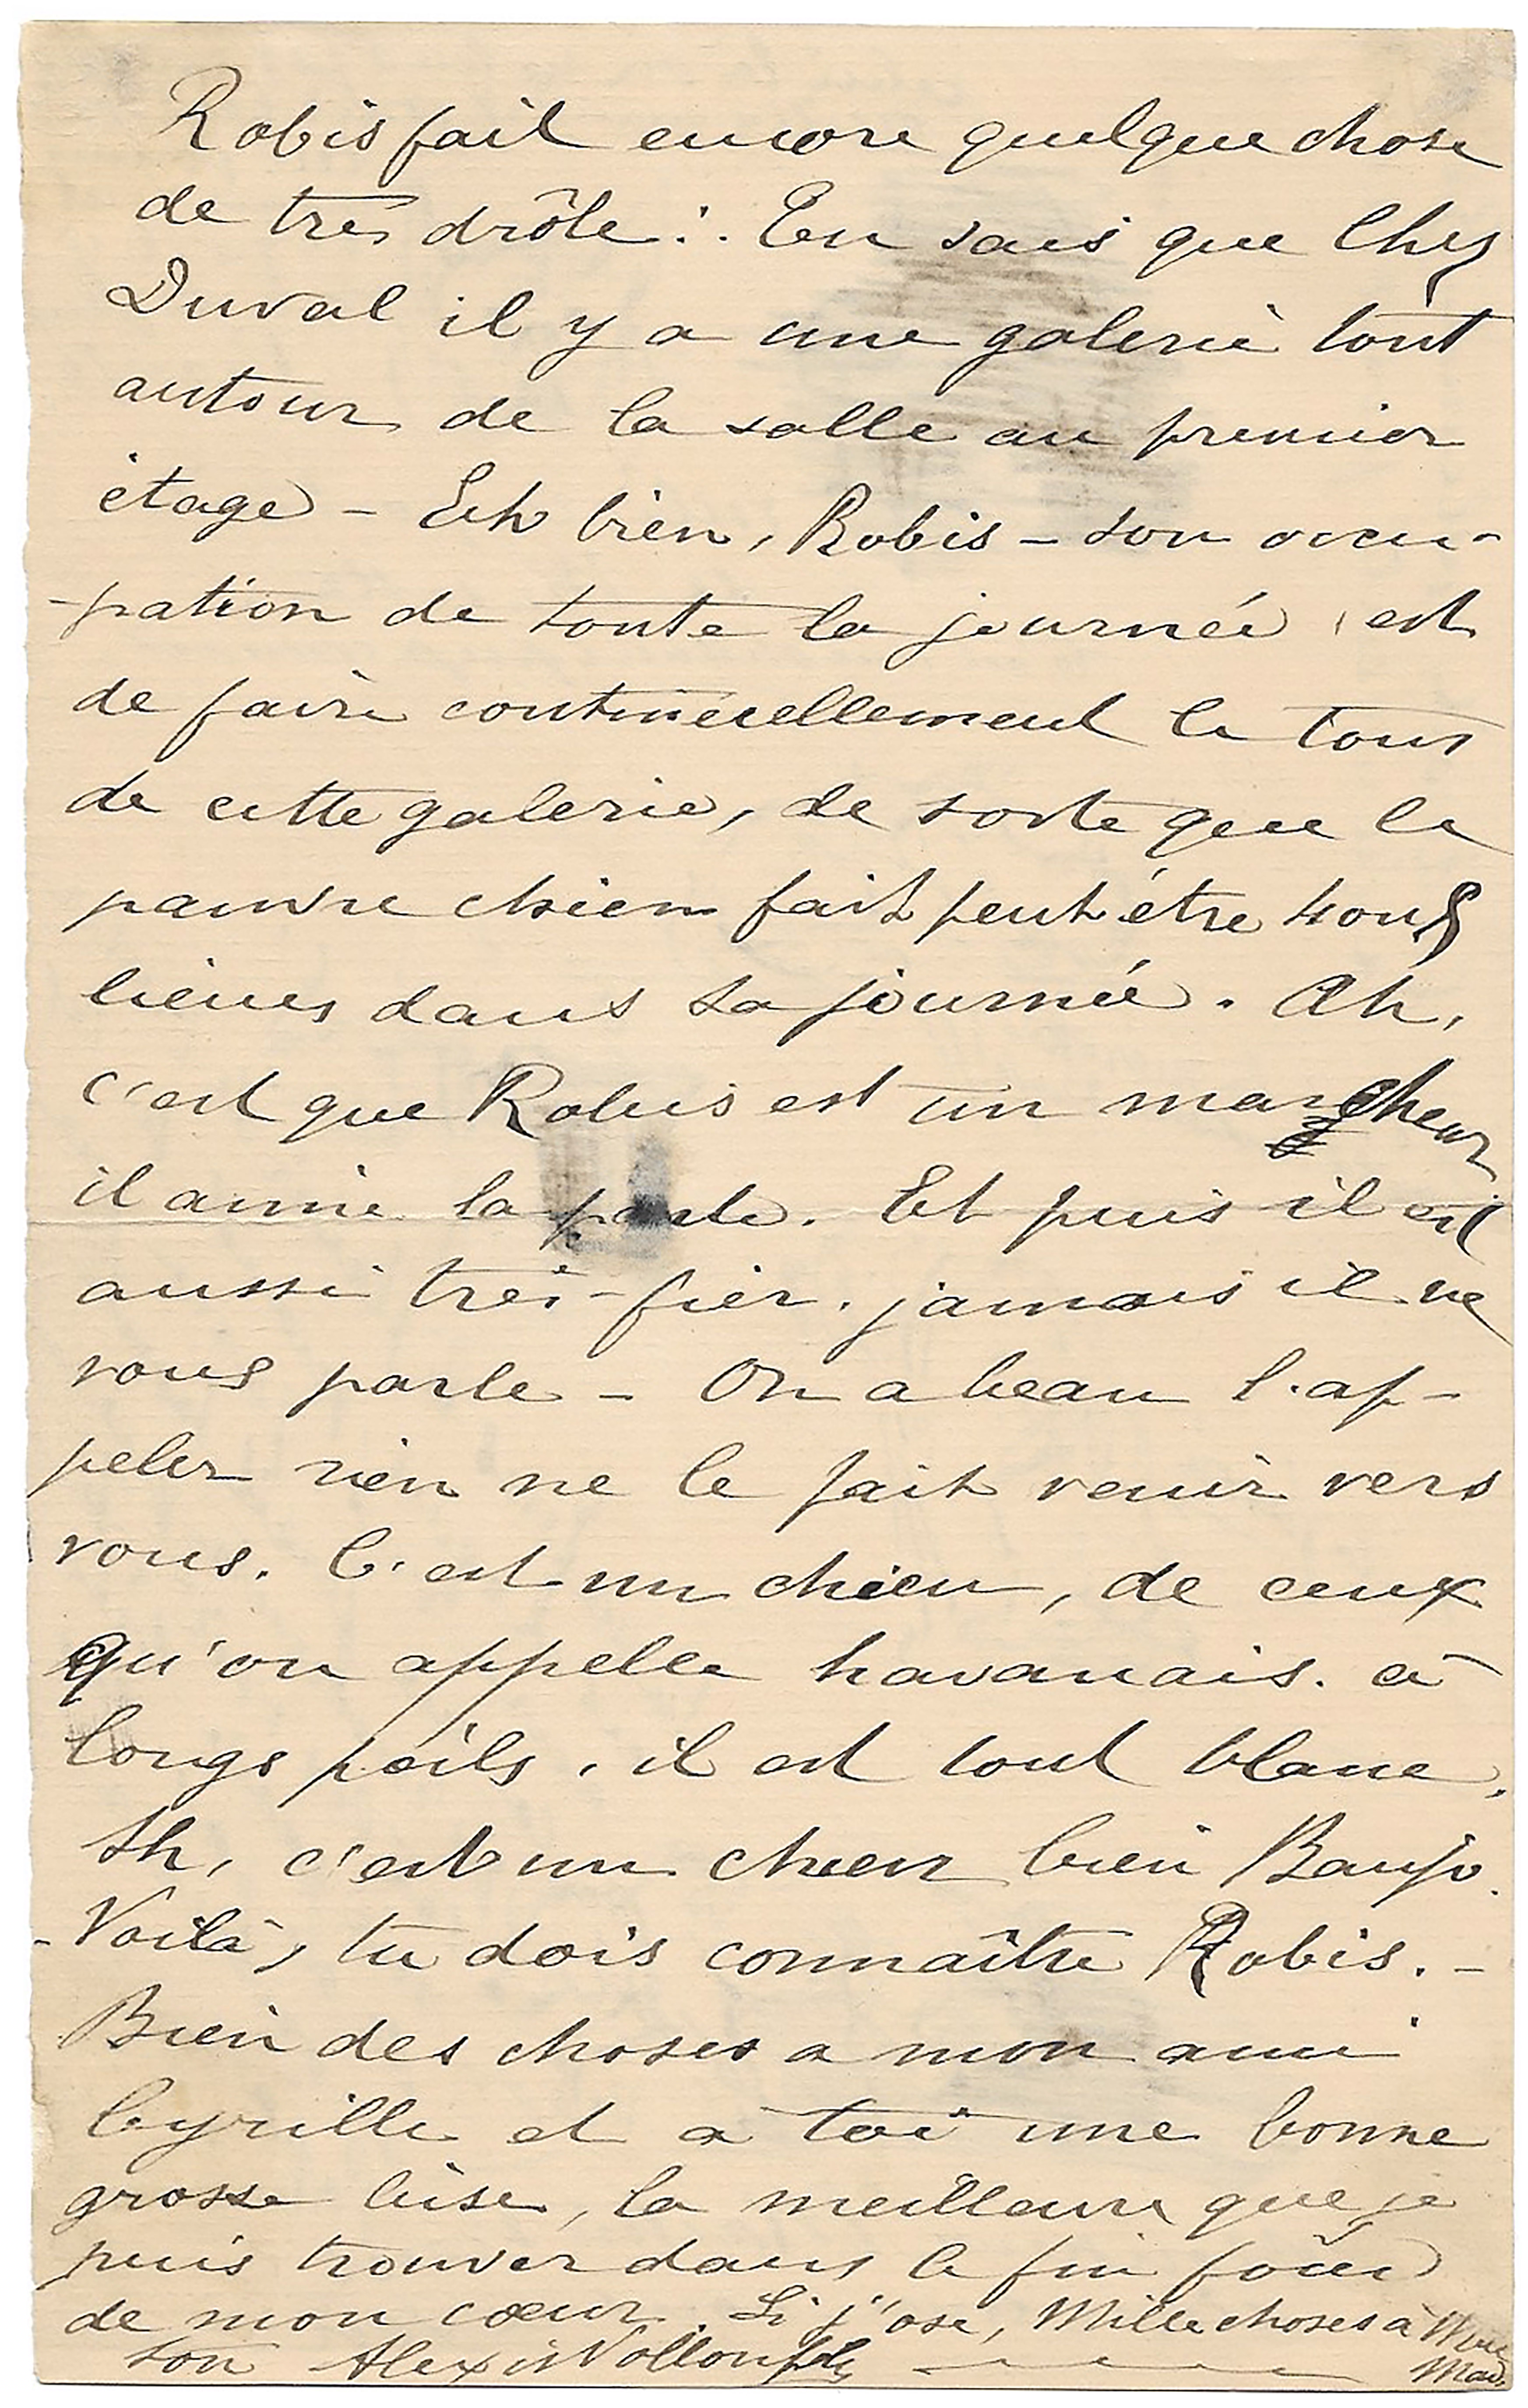 Robis fait encore quelque chose
de très drôle : Tu sais que Chez
Duval il y a une galerie tout
autour de la salle au premier
étage - Eh bien, Robis - son occu-
-pation de toute la journée, est
de faire continuellement le tour
de cette galerie, de sorte que le
pauvre chien fait peut être 4 ou 5
lieues dans sa journée. Ah,
c'est que Robis est un marcheur
il aime la porte. Et puis il est
aussi très-fier. jamais il ne
vous parle - On a beau l'ap-
peler rien ne le fait venir vers
vous. C'est un chien, de ceux
qu'on appelle havanais. à
longs poils, il est tout blanc.
Ah, c'est un chien bien Banjo.
-Voilà, tu dois connaître Robis. -
Bien des choses a mon ami
Cyrille et a toi une bonne
grosse bise, la meilleure que je
puis trouver dans le fin fond
de mon cœur. Si j'ose, Mille choses à
ton Alexis Vollon fils Mad.